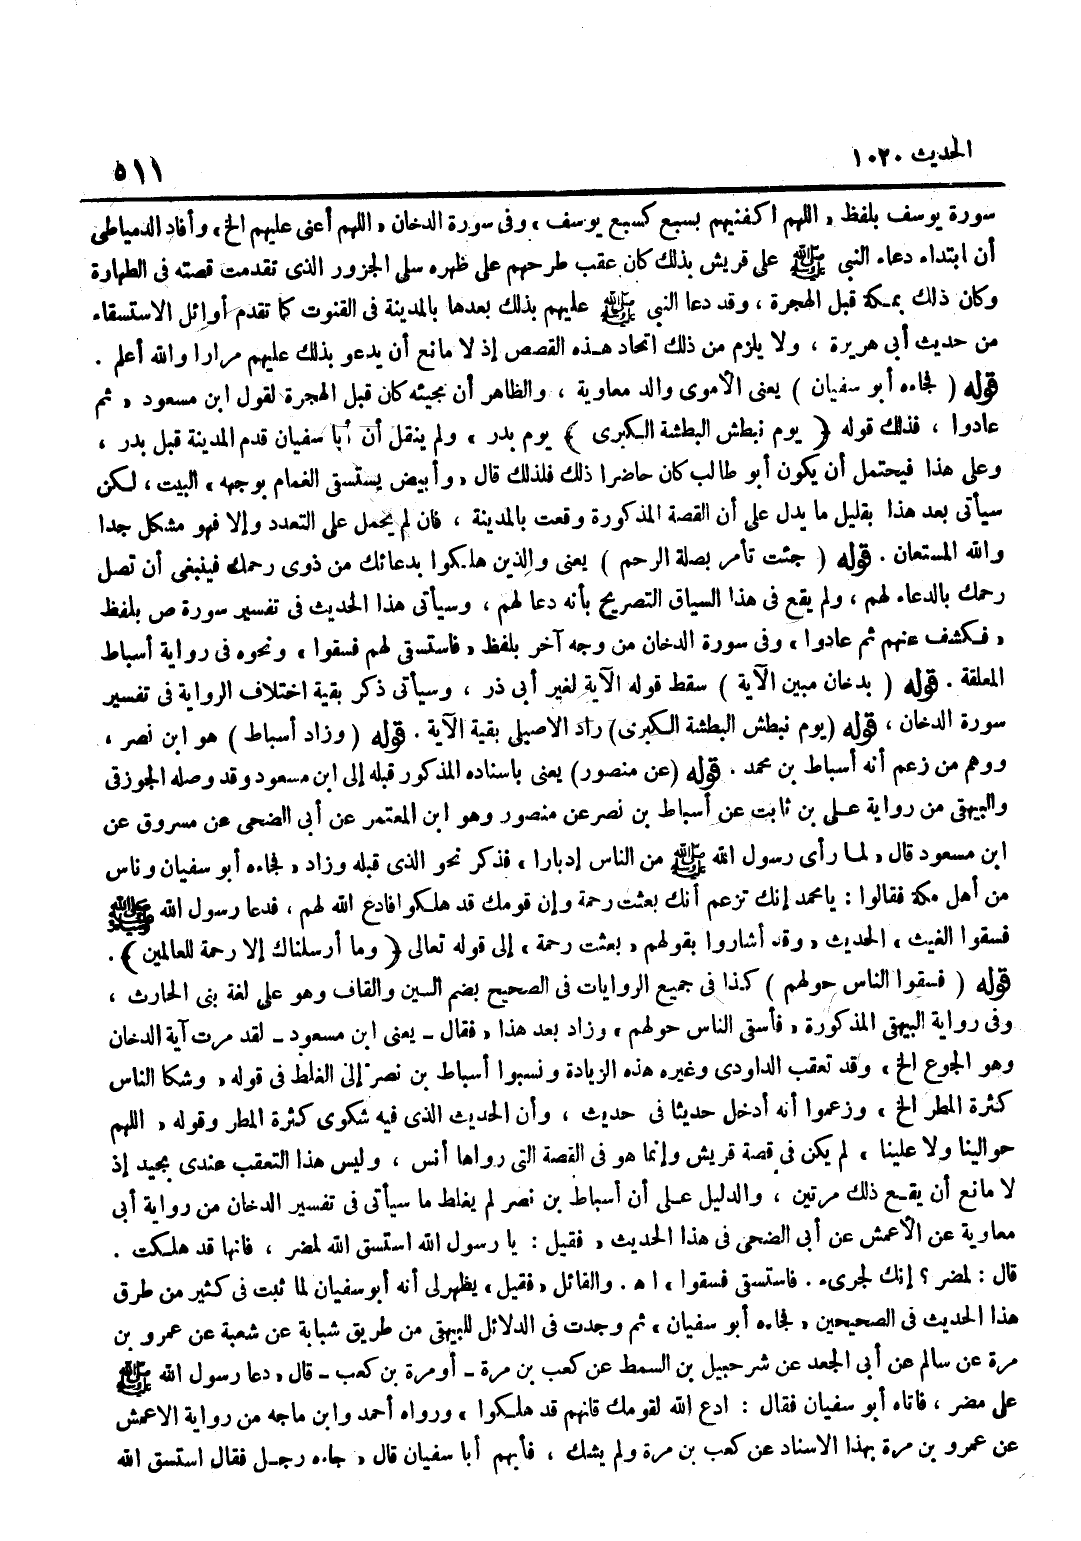 الحديث ١٠٢٠
٥١١
سورة يوسف بلفظ « اللهم اكفنيهم بسبع كسبع يوسف » وفى سورة الدخان « اللهم أعنى عليهم الخ » وأفاد الدمياطى
أن ابتداء دعاء النبى ﷺ على قريش بذلك كان عقب طرحهم على ظهره سلى الجزور الذى تقدمت قصته فى الطهارة
وكان ذلك بمكة قبل الهجرة ، وقد دعا النبى ﷺ عليهم بذلك بعدها بالمدينة فى القنوت كما تقدم أوائل الاستسقاء
من حديث أبى هريرة ، ولا يلزم من ذلك اتحاد هذه القصص إذ لا مانع أن يدعو بذلك عليهم مرارا والله أعلم .
قوله ( فجاءه أبو سفيان ) يعنى الأموى والد معاوية ، والظاهر أن مجيئه كان قبل الهجرة لقول ابن مسعود « ثم
عادوا ، فذلك قوله ﴿ يوم نبطش البطشة الكبرى ﴾ يوم بدر » ولم ينقل أن أبا سفيان قدم المدينة قبل بدر ،
وعلى هذا فيحتمل أن يكون أبو طالب كان حاضرا ذلك فلذلك قال « وأبيض يستسقى الغمام بوجهه » البيت ، لكن
سيأتى بعد هذا بقليل ما يدل على أن القصة المذكورة وقعت بالمدينة ، فان لم يحمل على التعدد وإلا فهو مشكل جدا
والله المستعان . قوله ( جئت تأمر بصلة الرحم ) يعنى والذين هلكوا بدعائك من ذوى رحمك فينبغى أن تصل
رحمك بالدعاء لهم ، ولم يقع فى هذا السياق التصريح بأنه دعا لهم ، وسيأتى هذا الحديث فى تفسير سورة ص بلفظ
« فكشف عنهم ثم عادوا » وفى سورة الدخان من وجه آخر بلفظ « فاستسقى لهم فسقوا » ونحوه فى رواية أسباط
المعلقة . قوله ( بدخان مبين الآية ) سقط قوله الآية لغير أبى ذر ، وسيأتى ذكر بقية اختلاف الرواية فى تفسير
سورة الدخان ، قوله (يوم نبطش البطشة الكبرى) زاد الاصيلى بقية الآية . قوله ( وزاد أسباط ) هو ابن نصر ،
ووهم من زعم أنه أسباط بن محمد . قوله (عن منصور) يعنى باسناده المذكور قبله إلى ابن مسعود وقد وصله الجوزقى
والبيهقى من رواية على بن ثابت عن أسباط بن نصر عن منصور وهو ابن المعتمر عن أبى الضحى عن مسروق عن
ابن مسعود قال « لما رأى رسول الله ﷺ من الناس إدبارا » فذكر نحو الذى قبله وزاد « فجاءه أبو سفيان وناس
من أهل مكة فقالوا : يا محمد إنك تزعم أنك بعثت رحمة وإن قومك قد هلكوا فادع الله لهم ، فدعا رسول الله ﷺ
فسقوا الغيث » الحديث « وقد أشاروا بقولهم « بعثت رحمة » إلى قوله تعالى ﴿ وما أرسلناك إلا رحمة للعالمين ﴾ .
قوله ( فسقوا الناس حولهم ) كذا فى جميع الروايات فى الصحيح بضم السين والقاف وهو على لغة بنى الحارث ،
وفى رواية البيهقى المذكورة « فأسقى الناس حولهم » وزاد بعد هذا « فقال ـ يعنى ابن مسعود ـ لقد مرت آية الدخان
وهو الجوع الخ » وقد تعقب الداودى وغيره هذه الزيادة ونسبوا أسباط بن نصر إلى الغلط فى قوله « وشكا الناس
كثرة المطر الخ » وزعموا أنه أدخل حديثا فى حديث ، وأن الحديث الذى فيه شكوى كثرة المطر وقوله « اللهم
حوالينا ولا علينا » لم يكن فى قصة قريش وإنما هو فى القصة التى رواها أنس ، وليس هذا التعقب عندى بجيد إذ
لا مانع أن يقع ذلك مرتين ، والدليل على أن أسباط بن نصر لم يغلط ما سيأتى فى تفسير الدخان من رواية أبى
معاوية عن الأعمش عن أبى الضحى فى هذا الحديث « فقيل : يا رسول الله استسق الله لمضر ، فانها قد هلكت .
قال : لمضر ؟ إنك لجرىء . فاستسقى فسقوا » ا هـ . والقائل « فقيل » يظهر لى أنه أبو سفيان لما ثبت فى كثير من طرق
هذا الحديث فى الصحيحين « فجاءه أبو سفيان » ثم وجدت فى الدلائل للبيهقى من طريق شبابة عن شعبة عن عمرو بن
مرة عن سالم عن أبى الجعد عن شرحبيل بن السمط عن كعب بن مرة ـ أو مرة بن كعب ـ قال « دعا رسول الله ﷺ
على مضر ، فاتاه أبو سفيان فقال : ادع الله لقومك فانهم قد هلكوا » ورواه أحمد وابن ماجه من رواية الاعمش
عن عمرو بن مرة بهذا الاسناد عن كعب بن مرة ولم يشك ، فأبهم أبا سفيان قال « جاءه رجل فقال استسق الله